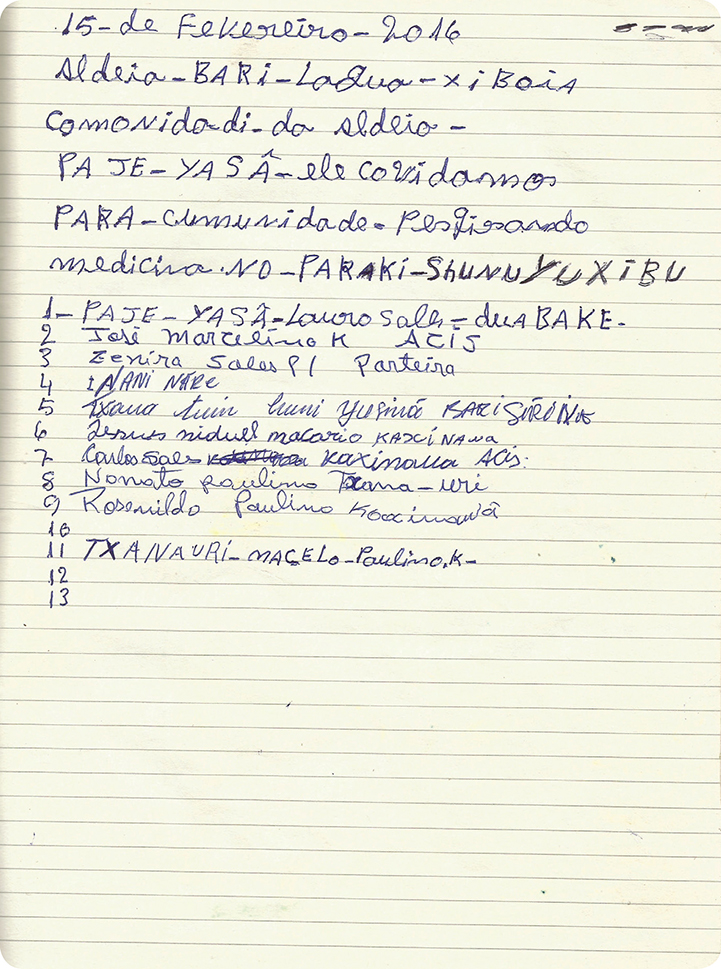 15-de Fekereiro-2016
Aldeia-BARI-Lagua-xiBoiA
Comonidadi-da Aldeia-
PAJE-YASÂ-ele Covidamos
PARA-Cumunidade-Pesqisando
medicina.NO-PARAKI-ShUNUYUXIBU
1-PAJE-YASÂ-Lauro Sales-duaBAKE-
2 José Marcelino K ACIS
3 Zenira Sales P/ Parteira
4 INANI NÃKe
5 Txana tuin huni BARI
6 Jesus macario KAXINAWA
7 Carlos Sales Kaxinawa ACIS.
8 Nonato paulino Txana-
9 Rosenildo Paulino Kaxinawâ
10
11 TXANAURI-MACELO-Paulino.K-
12
13